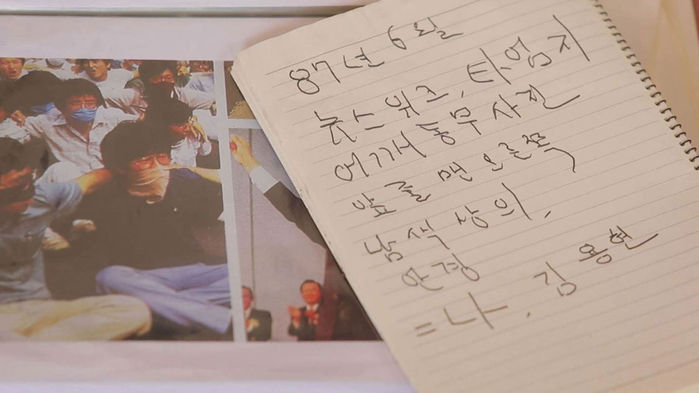 87년 6월
뉴스위크, 타임지
어깨동무 사진
앞줄 맨 오른쪽
남색 상의,
안경
= 나, 김용현